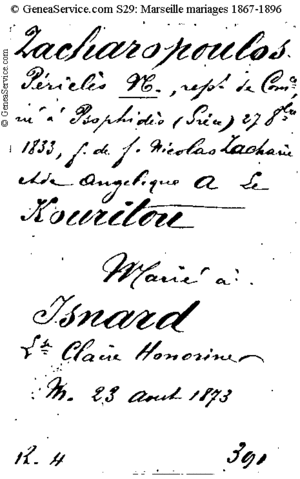 © GeneaService.com S29: Marseille mariages 1867-1896
© GeneaService.com
Zacharopoulos
Périclès N., rept. de Comce
né à Psophidès (Grèce) 27 8bre
1833, f. de f. Nicolas Zacharie
et de Angelique A Le
Kouritou
Marié à
Isnard
Lse Claire Honorine
M. 23 Aout 1873
12. 4 390